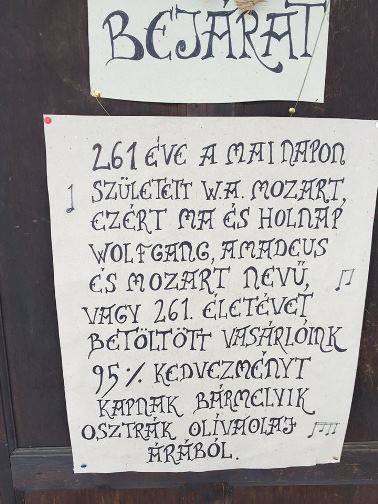 BEJÁRAT
261 ÉVE A MAI NAPON
SZÜLETETT W.A. MOZART,
EZÉRT MA ÉS HOLNAP
WOLFGANG, AMADEUS
ÉS MOZART NEVŰ,
VAGY 261. ÉLETÉVET
BETÖLTÖTT VASÁRLÓINK
95% KEDVEZMÉNYT
KAPNAK BÁRMELYIK
OSZTRÁK OLÍVAOLAJ
ÁRÁBÓL.